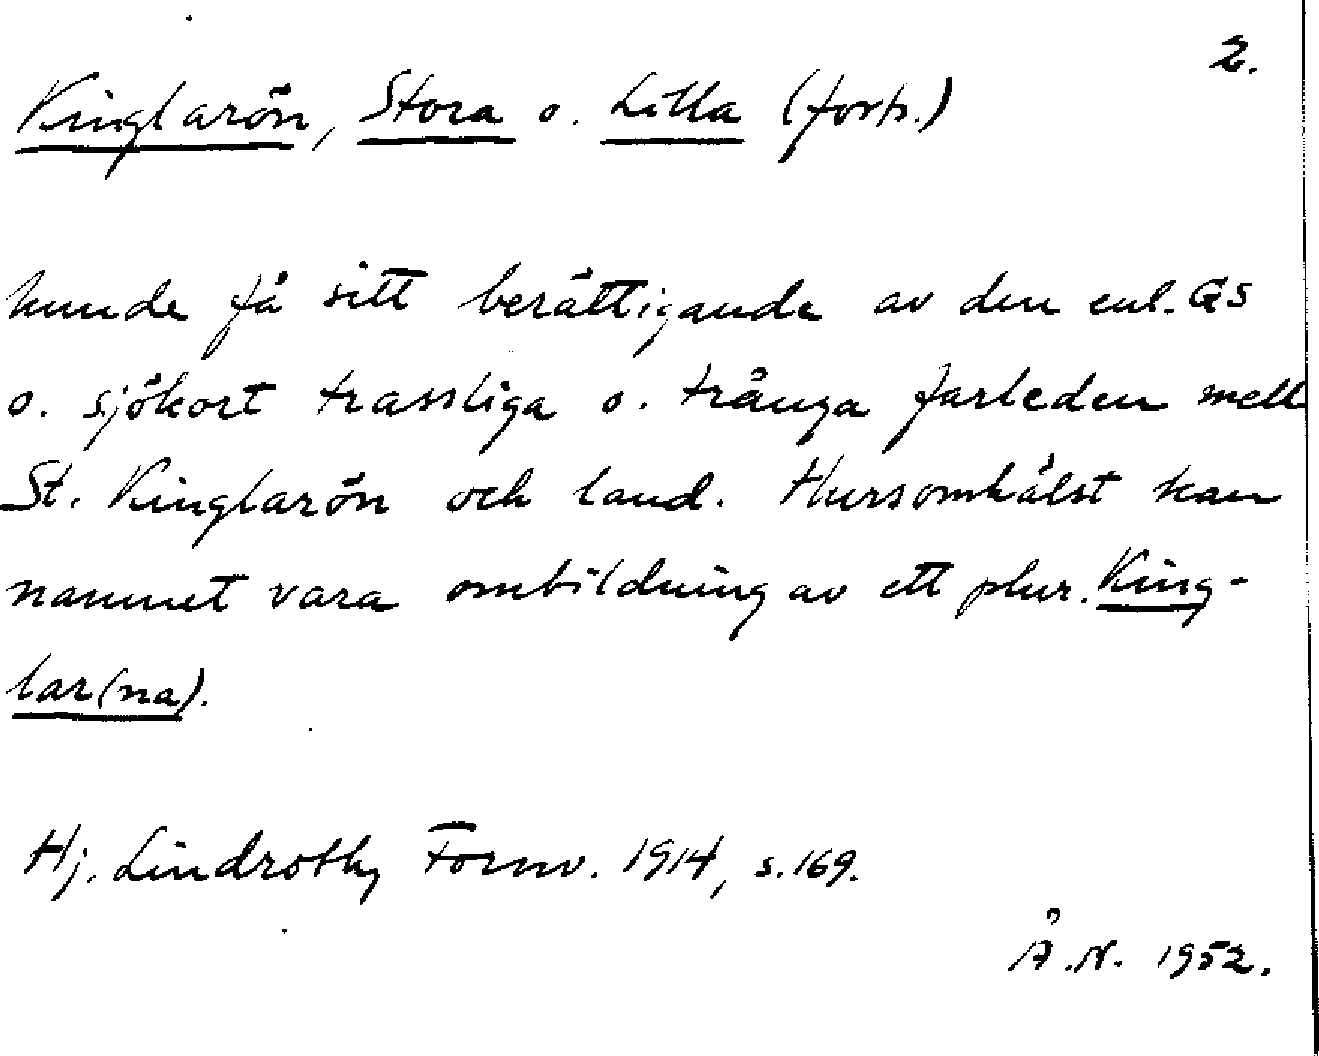 2.
Kinglarön, Stora o. Lilla (forts.)
kunde få sitt berättigande av den enl. GS
o. sjökort trassliga o. trånga farleden mell
St. Kinglarön och land. Hursomhälst kan
namnet vara ombildning av ett plur. King-
lar(na).
Hj. Lindroth, Fornv. 1914, s. 169.
Å.N. 1952.